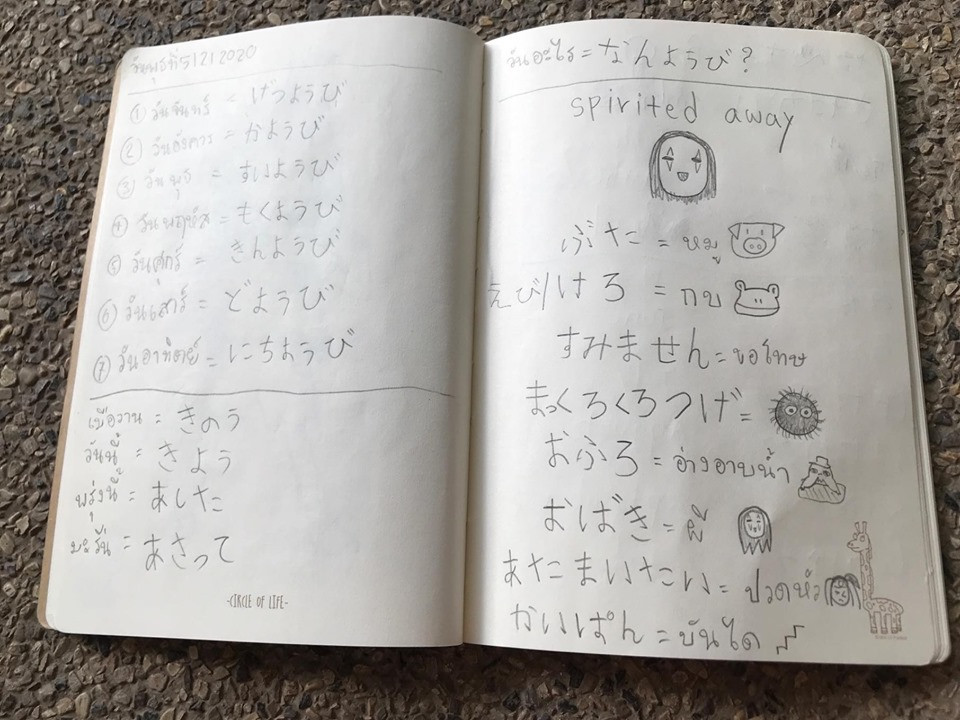 วันพุธที่5|2|2020
① วันจันทร์ = げつようび
② วันอังคาร = かようび
③ วันพุธ = すいようび
④ วันพฤหัส = もくようび
⑤ วันศุกร์ = きんようび
⑥ วันเสาร์ = どようび
⑦ วันอาทิตย์ = にちようび
เมื่อวาน = きのう
วันนี้ = きよう
พรุ่งนี้ = あした
มะรืน = あさって
-CIRCLE OF LIFE-
วันอะไร = なんようび?
spirited away
ぶた = หมู
えび/けろ = กบ
すみません = ขอโทษ
まっくろくろつげ =
おふろ = อ่างอาบน้ำ
おばき = ผี
あたまいたい = ปวดหัว
かいぱん = บันได